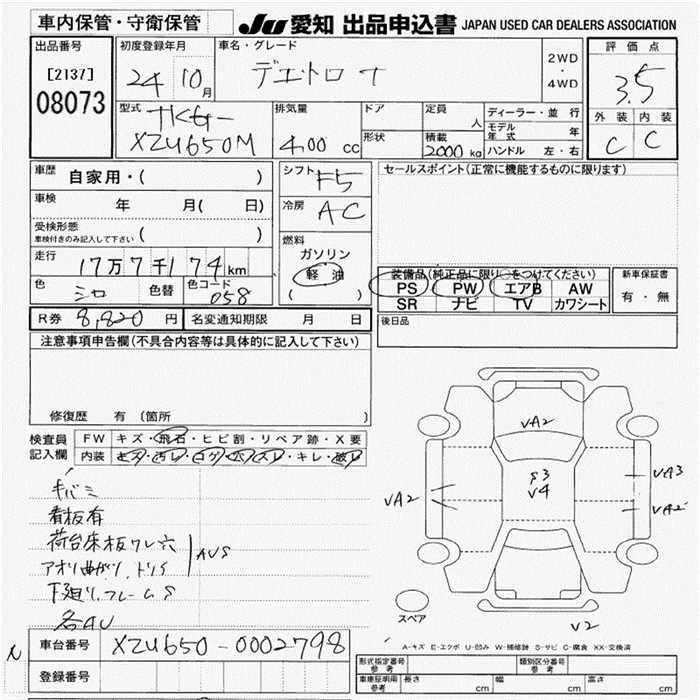 車内保管・守衛保管
JU 愛知 出品申込書 JAPAN USED CAR DEALERS ASSOCIATION
出品番号
[2137]
08073
初度登録年月
24年10月
車名・グレード
2WD
・
4WD
評価点
3.5
外装 内装
C C
型式
TKG-
XZU650M
排気量
4.00 cc
ドア
形状
定員
人
積載
2000 kg
ディーラー・並行
モデル年式 年
ハンドル 左・右
車歴
自家用・( )
車検
年 月( 日)
受検形態
車検付きのみ記入して下さい ( )
走行
17万7千174km
色
シロ
色替
色コード
058
シフト
F5
冷房
AC
燃料
ガソリン
軽油
( )
セールスポイント(正常に機能するものに限ります)
装備品(純正品に限り○をつけてください)
PS PW エアB AW
SR ナビ TV カワシート
新車保証書
有・無
R券 8,820 円
名変通知期限 月 日
後日品
注意事項申告欄(不具合内容等は具体的に記入して下さい)
修復歴 有 (箇所
検査員
記入欄
FW キズ・飛石・ヒビ割・リペア跡・X要
内装 キズ・汚レ・コゲ・穴・スレ・キレ・破レ
キバミ
看板有
荷台床板ワレ穴
アオリ曲がり、トリS
AUS
下廻リ、フレームS
各AU
VA2
S3
V4
VA2
VA3
VA2
V2
スペア
A-キズ E-エクボ U-凹み W-補修跡 S-サビ C-腐食 XX-交換済
車台番号
XZU650-0002798
登録番号
形式指定番号
参考
類別区分番号
参考
車庫証明用
参考
長さ cm 幅 cm 高さ cm